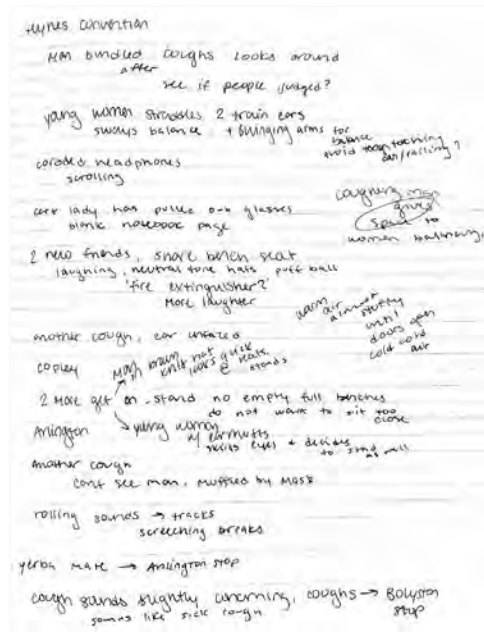 Hynes convention
MM bundled coughs looks around
after
see if people judged?
young women straddles 2 train cars
sways balance + swinging arms for
balance
avoid touching
car/railing?
corded headphones
scrolling
coughing man
gives
space to
women balancing
lady has pulled out glasses
blank notebook page
2 new friends, share bench seat
laughing, neutral tone hats, puff ball
'fire extinguisher?'
More laughter
warm air
almost
stuffy
until
doors open
cold cold
air
another cough, car unfazed
copley
man brown
knit hat
looks quick
@ seats,
stands
2 more get on - stand no empty full benches
do not want to sit too
close
Arlington
young woman
w/ earmuffs
skills eyes + decides
to stand
as well
Another cough
cant see man, muffled by mask
rolling sounds → tracks
screeching breaks
yerba mate → Arlington stop
cough sounds slightly concerning, coughs → Bolyston
stop
sounds like sick cough